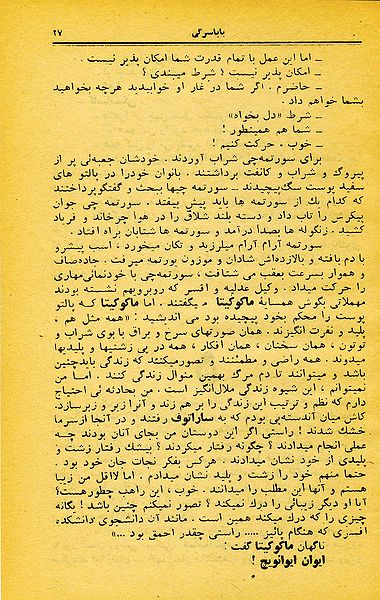 باباسرگی ۲۷
ـ اما این عمل با تمام قدرت شما امکان پذیر نیست . .
ـ امکان پذیر نیست ؟ شرط میبندی ؟
ـ حاضرم . اگر شما در غار او خوابیدید هرچه بخواهید
بشما خواهم داد .
ـ شرط «دل بخواه»
ـ شما هم همینطور !
ـ خوب . حرکت کنیم !
برای سورتمه‌چی شراب آوردند . خودشان جعبه‌ئی پر از
پیروگ و شراب و کانفت برداشتند . بانوان خودرا در پالتو های
سفید پوست سگ‌پیچیدند ـ سورتمه چیها ببحث و گفتگوپرداختند
که کدام یك از سورتمه ها باید پیش بیفتد . سورتمه چی جوان
پیکرش را تاب داد و دسته بلند شلاق را در هوا چرخاند و فریاد
کشید . زنگوله ها بصدا درآمد و سورتمه ها شتابان براه افتاد .
سورتمه آرام آرام میلرزید و تکان میخورد ، اسب پیشرو
با دم بافته و یالازده‌اش شادان و موزون یورتمه میرفت . جاده‌صاف
و هموار بسرعت بعقب می شتافت ، سورتمه‌چی با خودنمائی‌مهاری
را حرکت میداد . وکیل عدلیه و افسر که روبرویهم نشسته بودند
مهملاتی بگوش همسایهٔ ماکوکیتا میگفتند . اما ماکوکیتا که پالتو
پوست را محکم بخود پیچیده بود می اندیشید : «همه مثل هم ،
پلید و نفرت انگیزند . همان صورتهای سرخ و براق با بوی شراب و
توتون ، همان سخنان ، همان افکار ، همه در پی زشتیها و پلیدیها
میدوند . همه راضی و مطمئنند و تصورمیکنند که زندگی بایدچنین
باشد و میتوانند تا دم مرگ بهمین منوال زندگی کنند . اما من
نمیتوانم ، این شیوه زندگی ملال‌انگیز است . من بحادثه ئی احتیاج
دارم که نظم و ترتیب این زندگی را بر هم زند و آنرا زیر و زبرسازد.
کاش میان آندسته‌یی بودم که به ساراتوف رفتند و در آنجا ازسرما
خشك شدند ! راستی اگر این دوستان من بجای آنان بودند چه
عملی انجام میدادند ؟ چگونه رفتار میکردند ؟ بیشك رفتار زشت و
پلیدی از خود نشان میدادند . هرکس بفکر نجات جان خود بود .
حتما منهم خود را زشت و پلید نشان میدادم . اما لااقل من زیبا
هستم و آنها این مطلب را میدانند . خوب ، این راهب چطورهست؟
آیا او دیگر زیبائی را درك نمیکند ؟ تصور نمیکنم چنین باشد ! یگانه
چیزی را که درك میکند همین است . مانند آن دانشجوی دانشکده
افسری که هنگام پائیز ..... راستی چقدر احمق بود ...»
ناگهان ماکوکیتا گفت :
ایوان ایوانویچ !